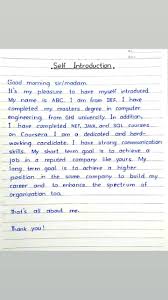 Self Introduction.
Good morning sir/madam.
It's my pleasure to have myself introduced.
My name is ABC. I am from DEF. I have
completed my masters degree in computer
engineering from GHI university. In addition,
I have completed .NET, JAVA, and SQL courses
on Coursera. I am a dedicated and hard-
working candidate. I have strong communication
skills. My short term goal is to achieve a
job in a reputed company like yours. My
long term goal is to achieve a higher
position in the same company to build my
career and to enhance the spectrum of
organization too.
That's all about me.
Thank you!